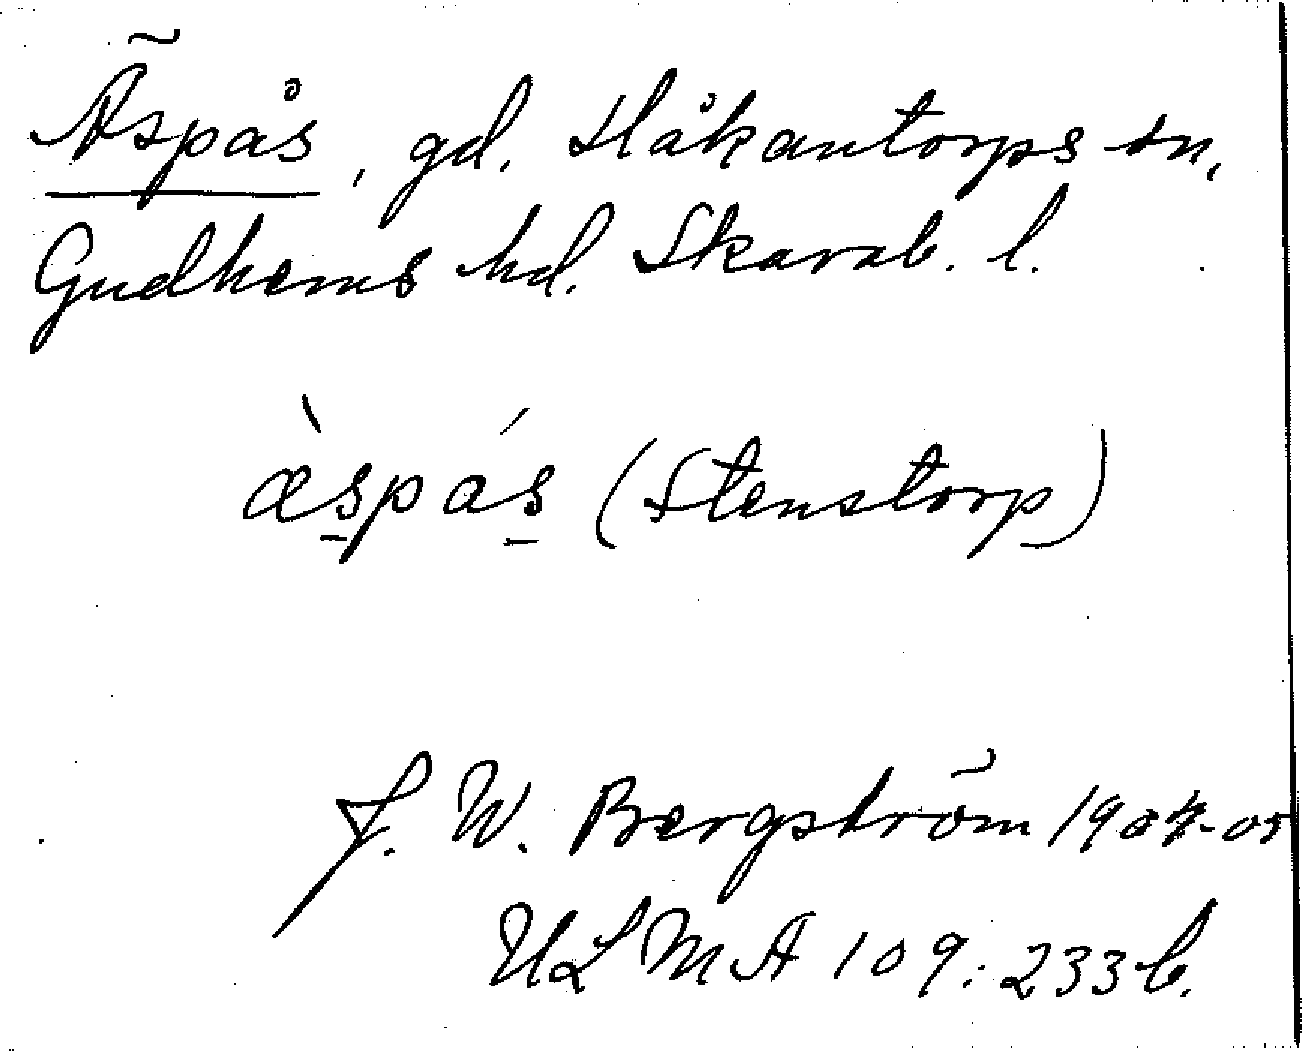 Äspås, gd. Håkantorps sn,
Gudhems hd. Skarab. l.
æ̀spás (Stenstorp)
J. W. Bergström 1904-05
ULMA 109:233 b.